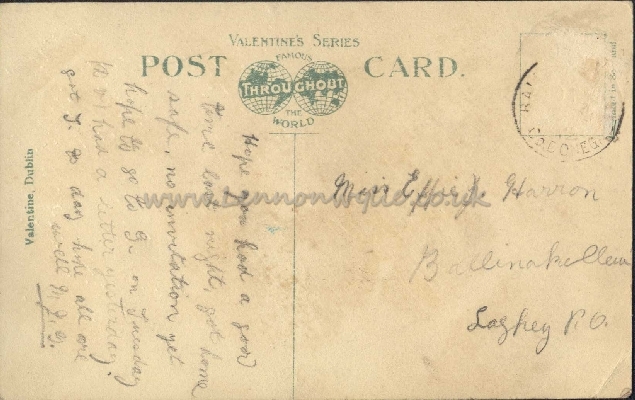 VALENTINE'S SERIES
FAMOUS
POST THROUGHOUT CARD.
THE
WORLD
Valentine, Dublin
Hope you had a good
time last night, got home
safe, no invitation yet
hope to go to G. on Tuesday
had a letter yesterday.
got to day hope all are
well M.J.G.
Miss Effie J. Harron
Laghey P.O.
CO.DONEGAL